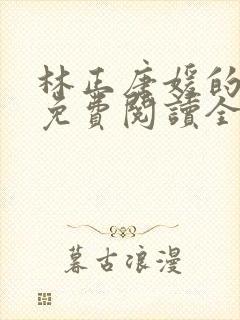 林正唐媛的
免費閱讀全
暮古浪漫